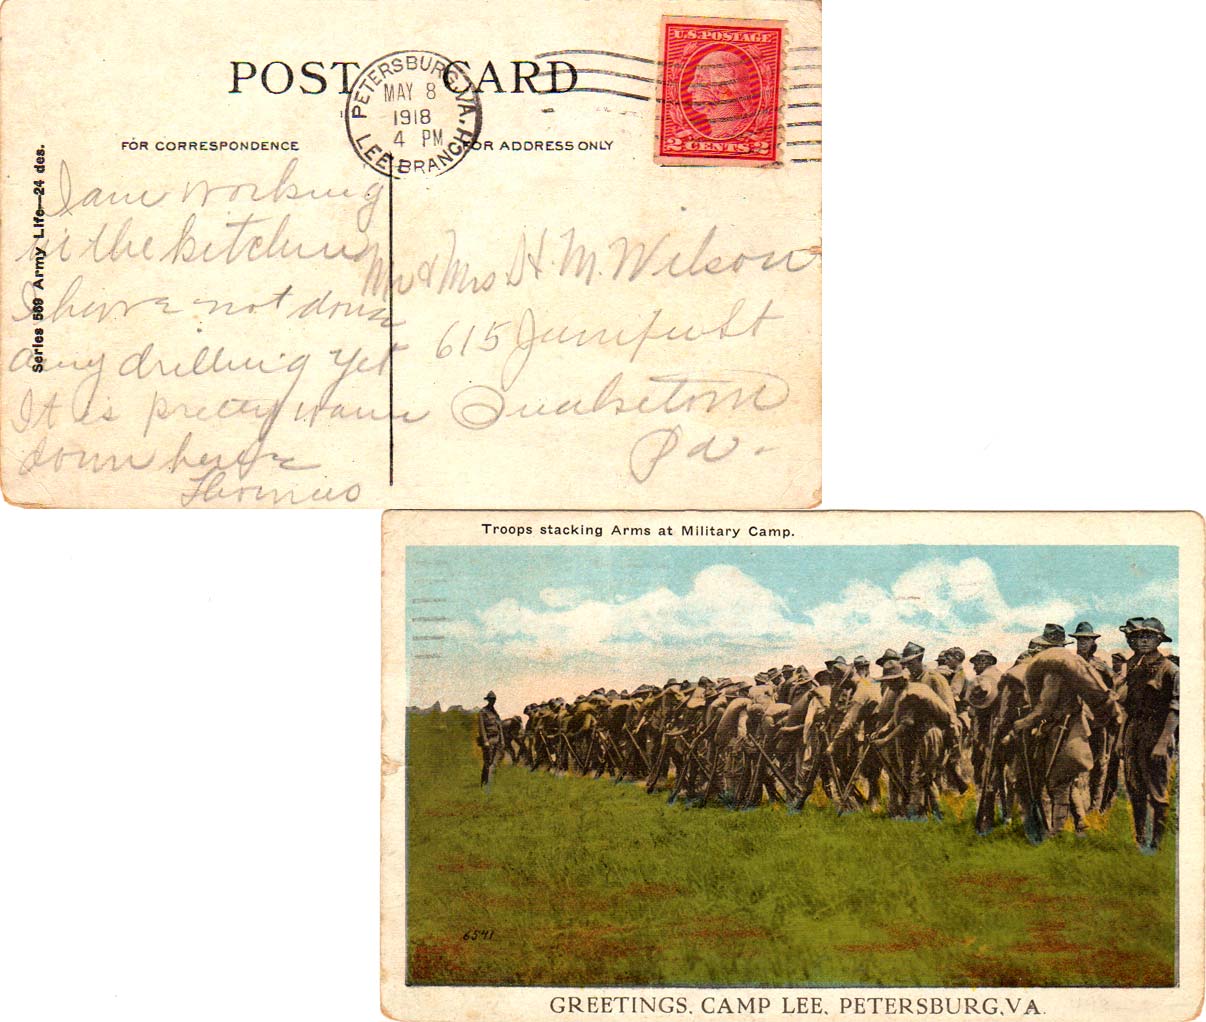 POST CARD
PETERSBURG, VA.
MAY 8
1918
4 PM
LEE BRANCH
U.S. POSTAGE
2 CENTS 2
FOR CORRESPONDENCE
FOR ADDRESS ONLY
Series 569 Army Life—24 des.
I am working
in the kitchen
I have not done
any drilling yet
It is pretty warm
down here
Thomas
Mr & Mrs H. M. Wilson
615 Juniper St
Quakertown
Pa.
Troops stacking Arms at Military Camp.
6541
GREETINGS, CAMP LEE, PETERSBURG, VA.